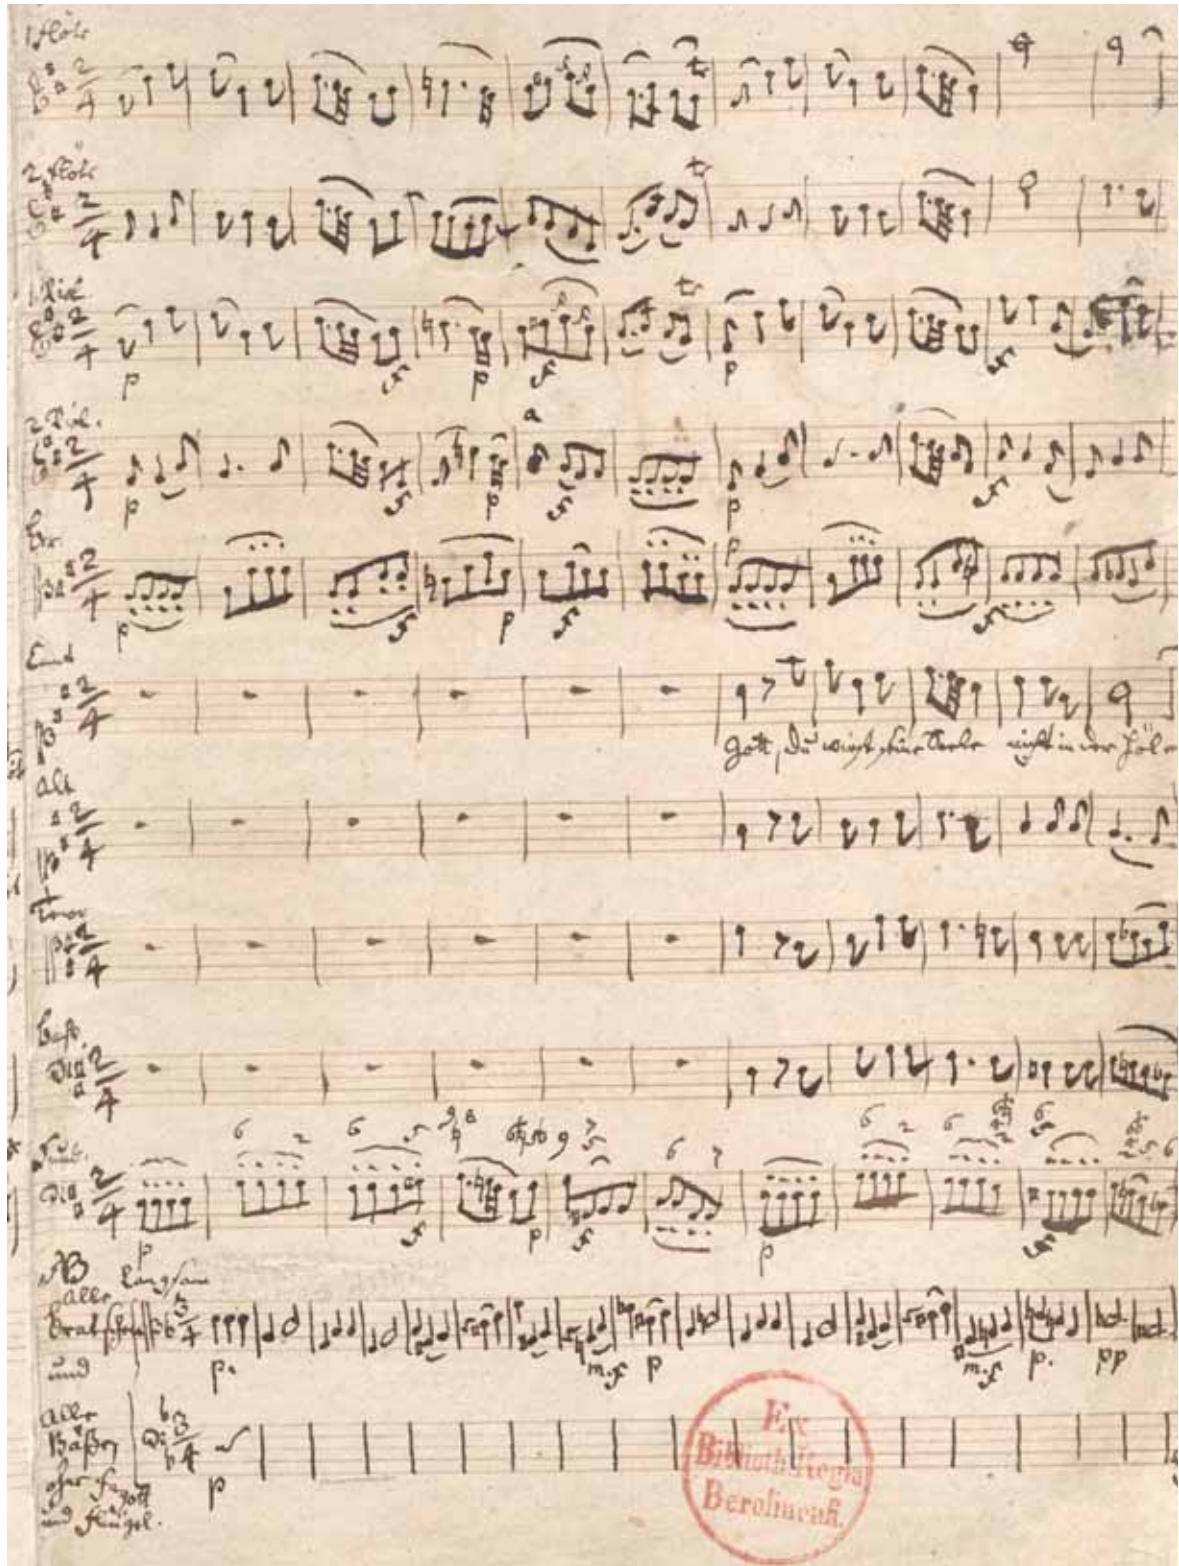 1 Flöte
2 Flöte
1 Viol.
2 Viol.
Br.
p
Alt
Tenor
Gott, du wirst seine Seele nicht in der Höl
Bass.
Fund.
NB
Langsam
alle
Bratschen
und
p.
m.f
p
m.f
p.
pp
alle
Bäßen
ohne Fagott
und Flügel.
p
Ex
Biblioth. Regia
Berolinensi.